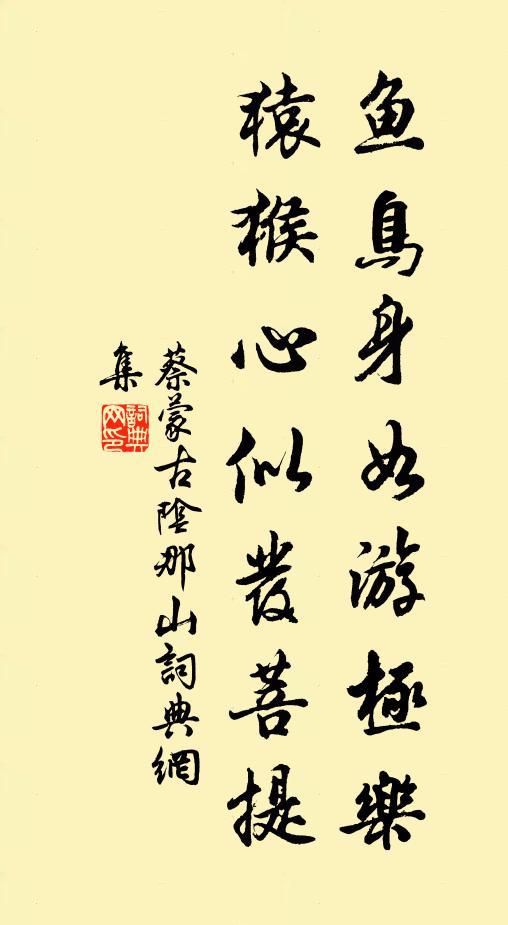 鱼鳥身如游極樂
猿猴心似發菩提
蔡蒙古陰那山詞典網
集
詞典
网印